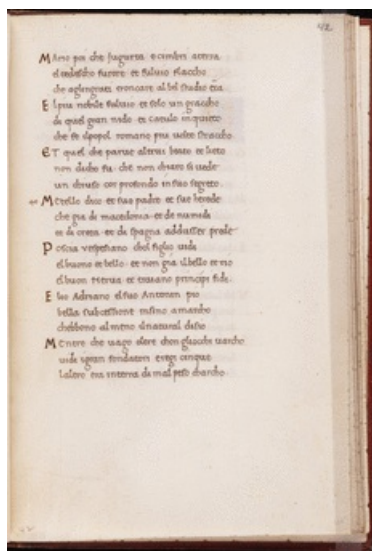 42
Mario poi che Jugurta e cimbri atterra
el tedesco furore et fuluio flaccho
che aglingrati troncare al bel studio era
E l piu nobile fuluio et solo un graccho
di quel gran nido et catulo inquieto
che fe il popol romano piu uolte straccho
ET quel che parue altrui beato et lieto
non dicho fu che non chiaro si uede
un chiuso cor profondo in suo segreto
Metello dico et suo padre et sue herede
che gia di macedonia et de numidi
et di creta et di spagna addusser prede
Poscia uespesiano chol figlio uidi
el buono et bello et non gia il bello et rio
el buon nerua et traiano principi fidi
Elio Adriano el suo Antonin pio
bella subcessione infino a marcho
chebbono almeno il natural disio
Mentre che uago oltre chon gliocchi uarcho
uidi il gran fondatori eregi cinque
laltro era in terra di mal peso charcho